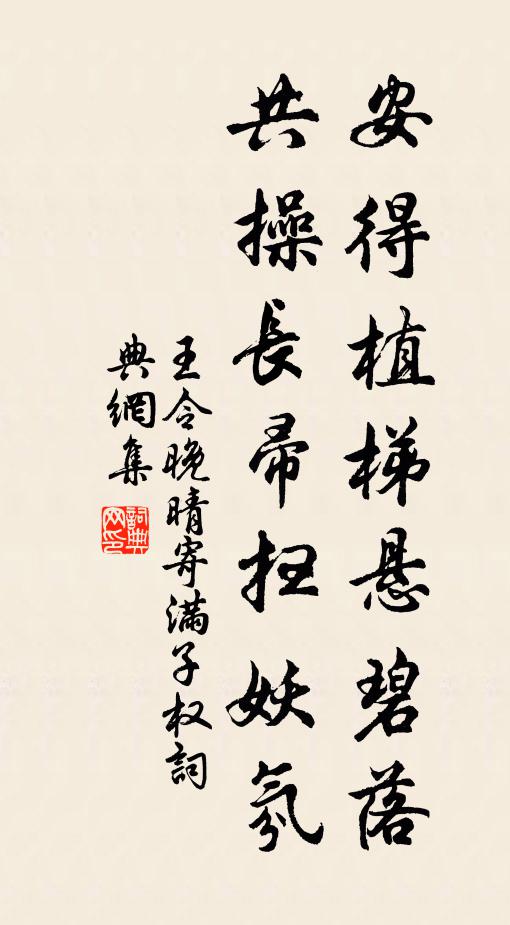 安得植梯悬碧落
共操長帚扫妖氛
王令晚晴寄满子权詞
典網集
詞典网印